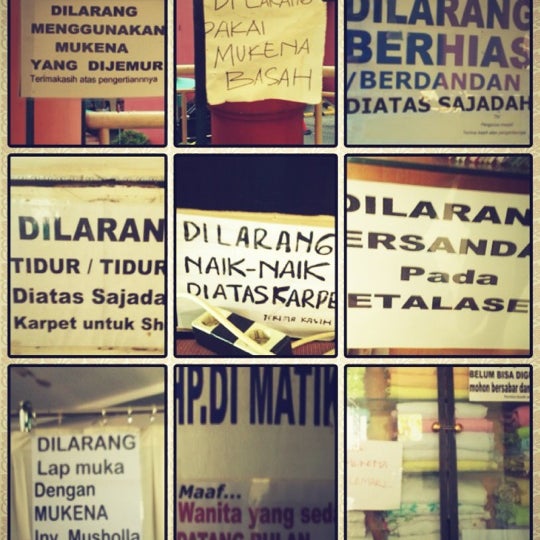 DILARANG
MENGGUNAKAN
MUKENA
YANG DIJEMUR
Terimakasih atas pengertiannnya
DILARANG
PAKAI
MUKENA
BASAH
DILARANG
BERHIAS
/BERDANDAN
DIATAS SAJADAH
DILARAN
TIDUR / TIDUR
Diatas Sajada
Karpet untuk Sh
DILARANG
NAIK-NAIK
DIATAS KARPE
TERIMA KASIH
DILARAN
ERSANDA
Pada
ETALASE
DILARANG
Lap muka
Dengan
MUKENA
Inv. Musholla
HP.DI MATIK
Maaf...
Wanita yang seda
DATANG BULAN
BELUM BISA DIG
mohon bersabar dan